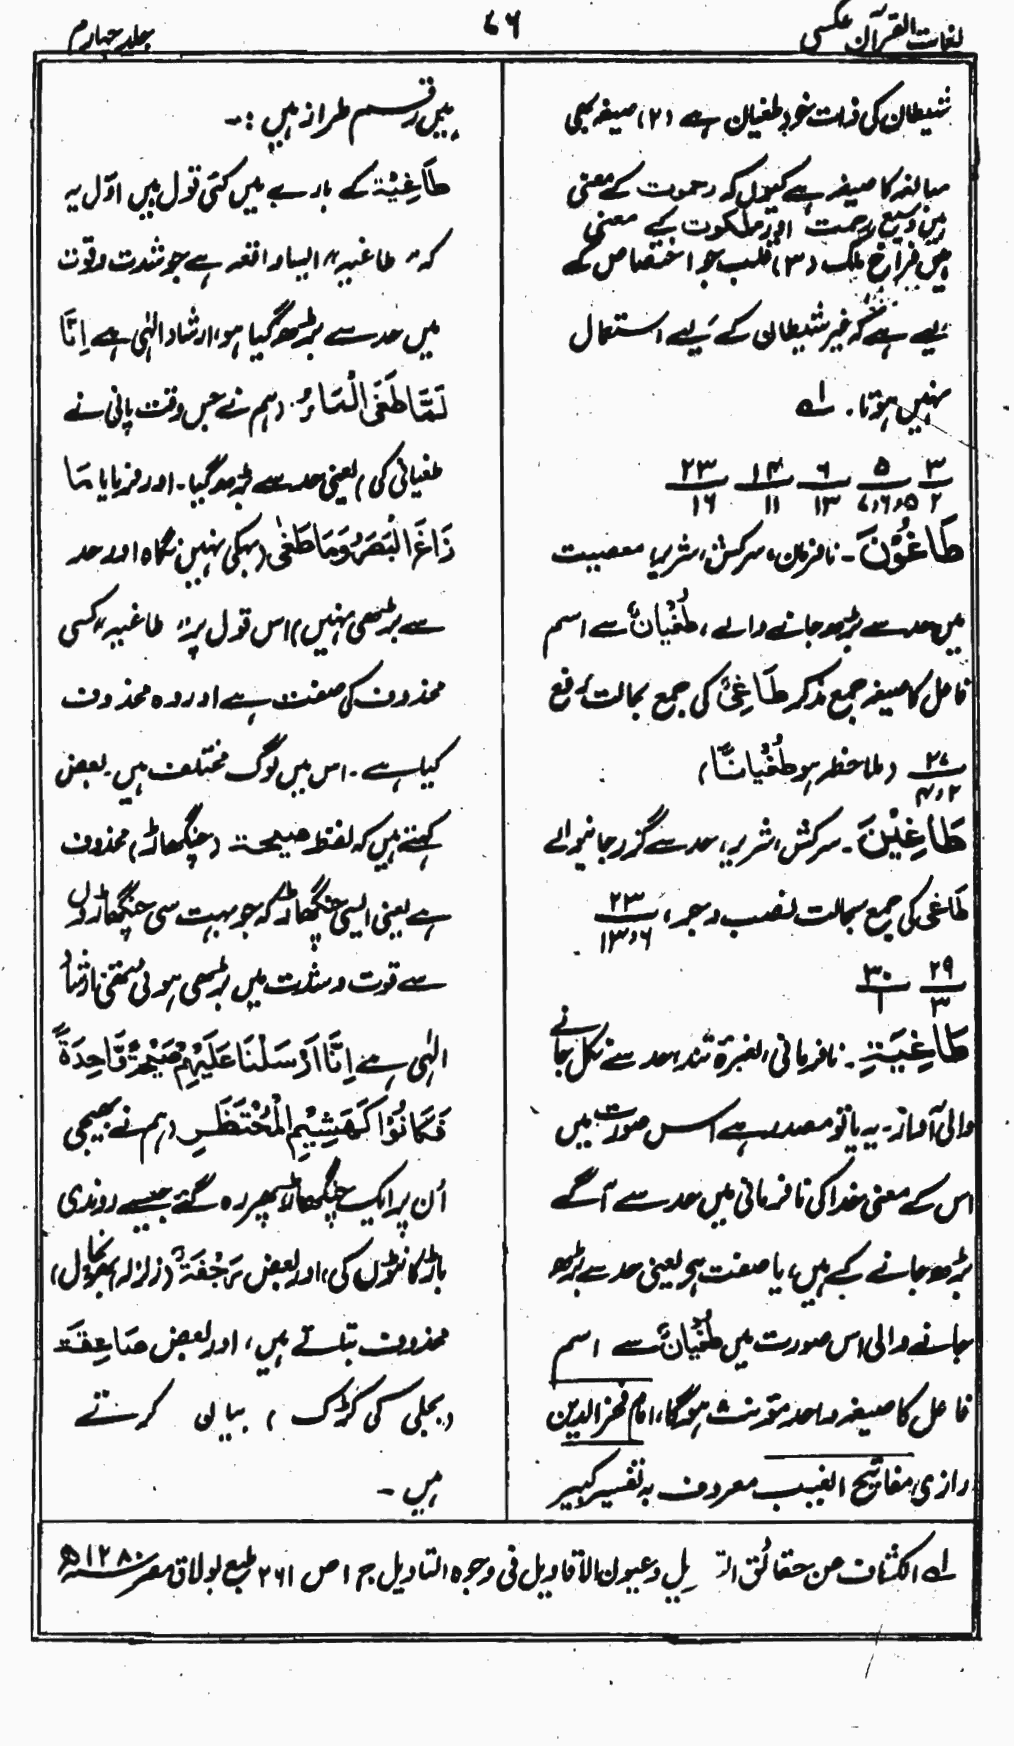 لغات القرآن عکسی
۷۶
جلد چہارم
شیطان کی ذات خود طغیان ہے (۲) صیغہ بھی
مبالغہ کا صیغہ ہے کیوں کہ رحموت کے معنی
میں وسیع رحمت اور ملکوت کے معنی
ہیں فراخ ملک (۳) قلب جو اختصاص کے
لیے ہے کہ غیر شیطان کے لیے استعمال
نہیں ہوتا۔ لہ
۳/۲ ۵/۵،۶،۷ ۶/۱۳ ۱۴/۱۱ ۲۳/۱۶
طَاغُوْنَ۔ نافرمان، سرکش، شریر، معصیت
میں حد سے بڑھ جانے والے، طُغْیَانٌ سے اسم
فاعل کا صیغہ جمع مذکر طَاغِیْ کی جمع بحالت رفع
۲۷/۲،۴ (ملاحظہ ہو طُغْیَانًا)
طَاغِیْنَ۔ سرکش، شریر، حد سے گزر جانیوالے
طَاغِیْ کی جمع بحالت نصب و جر، ۲۳/۱۳،۶
۲۹/۳ ۳۰/۱
طَاغِیَۃِ۔ نافرمانی، الغیرۃ تند، حد سے نکل جانے
والی آواز۔ یہ یا تو مصدر ہے اس صورت میں
اس کے معنی خدا کی نافرمانی میں حد سے آگے
بڑھ جانے کے ہیں، یا صفت ہو یعنی حد سے بڑھ
جانے والی اس صورت میں طُغْیَانٌ سے اسم
فاعل کا صیغہ واحد مؤنث ہوگا، امام فخر الدین
رازی مفاتیح الغیب معروف بہ تفسیر کبیر
میں رقم طراز ہیں :۔
طَاغِیَۃ کے بارے میں کئی قول ہیں اوّل یہ
کہ "طاغیہ" ایسا واقعہ ہے جو شدت و قوت
میں حد سے بڑھ گیا ہو، ارشاد الٰہی ہے اِنَّا
لَمَّا طَغَی الْمَاءُ (ہم نے جس وقت پانی نے
طغیانی کی) یعنی حد سے بڑھ گیا۔ اور فرمایا مَا
زَاغَ الْبَصَرُ وَمَا طَغٰی (بہکی نہیں نگاہ اور حد
سے بڑھی نہیں) اس قول پر "طاغیہ" کسی
محذوف کی صفت ہے اور وہ محذوف
کیا ہے۔ اس میں لوگ مختلف ہیں۔ بعض
کہتے ہیں کہ لفظ صیحۃ (چنگھاڑ) محذوف
ہے یعنی ایسی چنگھاڑ کہ جو بہت سی چنگھاڑوں
سے قوت و شدت میں بڑھی ہوئی تھی ارشاد
الٰہی ہے اِنَّا اَرْسَلْنَا عَلَیْہِمْ صَیْحَۃً وَّاحِدَۃً
فَکَانُوْا کَہَشِیْمِ الْمُحْتَظِرِ (ہم نے بھیجی
اُن پر ایک چنگھاڑ پھر رہ گئے جیسے روندی
باڑ کانٹوں کی)، اور بعض رَجْفَۃ (زلزلہ، بھونچال)
محذوف بتلاتے ہیں، اور بعض صَاعِقَۃ
(بجلی کی کڑک) بیان کرتے
ہیں۔
لہ الکشاف عن حقائق التنزیل وعیون الاقاویل فی وجوہ التاویل ج ۱ ص ۲۶۱ طبع بولاق مصر ۱۲۸۰ھ